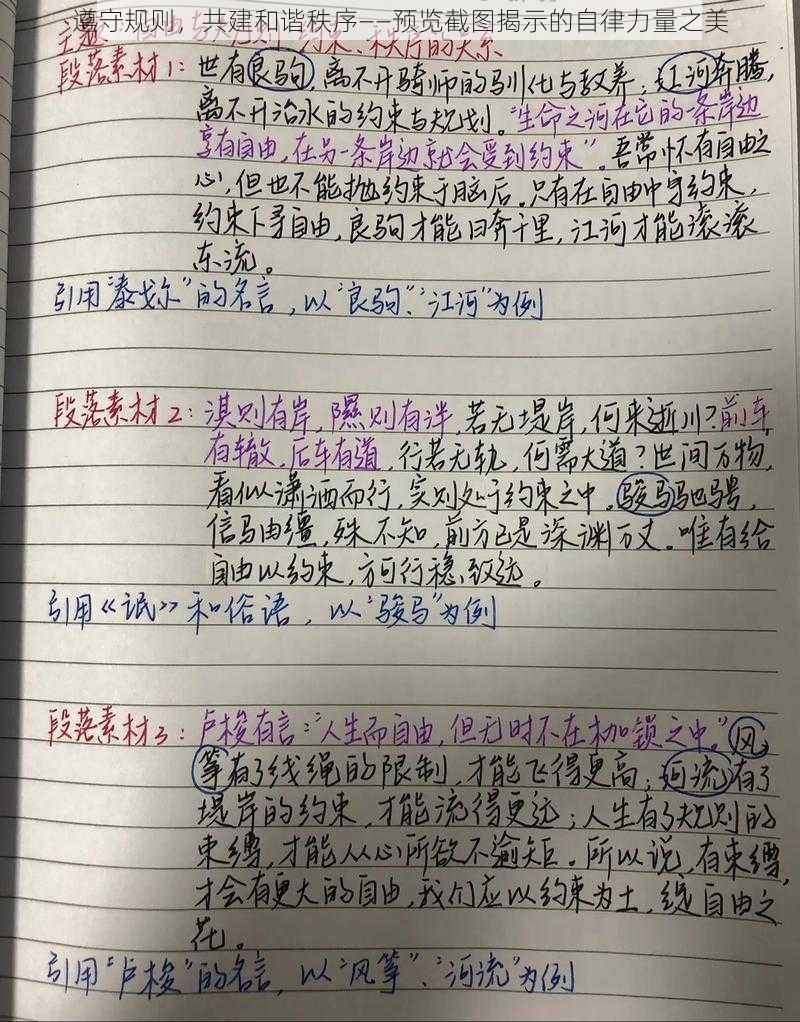 遵守规则，共建和谐秩序——预览截图揭示的自律力量之美
主题：自由与规则、约束、秩序的关系
段落素材1：世有良驹，离不开骑师的驯化与教养；江河奔腾，
离不开治水的约束与规划。“生命之河在它的一条岸边
享有自由，在另一条岸边就会受到约束”。吾常怀有自由之
心，但也不能抛约束于脑后。只有在自由中守约束，
约束下寻自由，良驹才能日奔千里，江河才能滚滚
东流。
引用“泰戈尔”的名言，以“良驹”、“江河”为例
段落素材2：淇则有岸，隰则有泮，若无堤岸，何来逝川？前车
有辙，后车有道，行若无轨，何需大道？世间万物，
看似潇洒而行，实则处于约束之中。骏马驰骋，
信马由缰，殊不知，前方已是深渊万丈。唯有给
自由以约束，方可行稳致远。
引用《氓》和俗语，以“骏马”为例
段落素材3：卢梭有言：“人生而自由，但无时不在枷锁之中。”风
筝有了线绳的限制，才能飞得更高；河流有了
堤岸的约束，才能流得更远；人生有了规则的
束缚，才能从心所欲不逾矩。所以说，有束缚，
才会有更大的自由，我们应以约束为土，绽自由之
花。
引用“卢梭”的名言，以“风筝”、“河流”为例